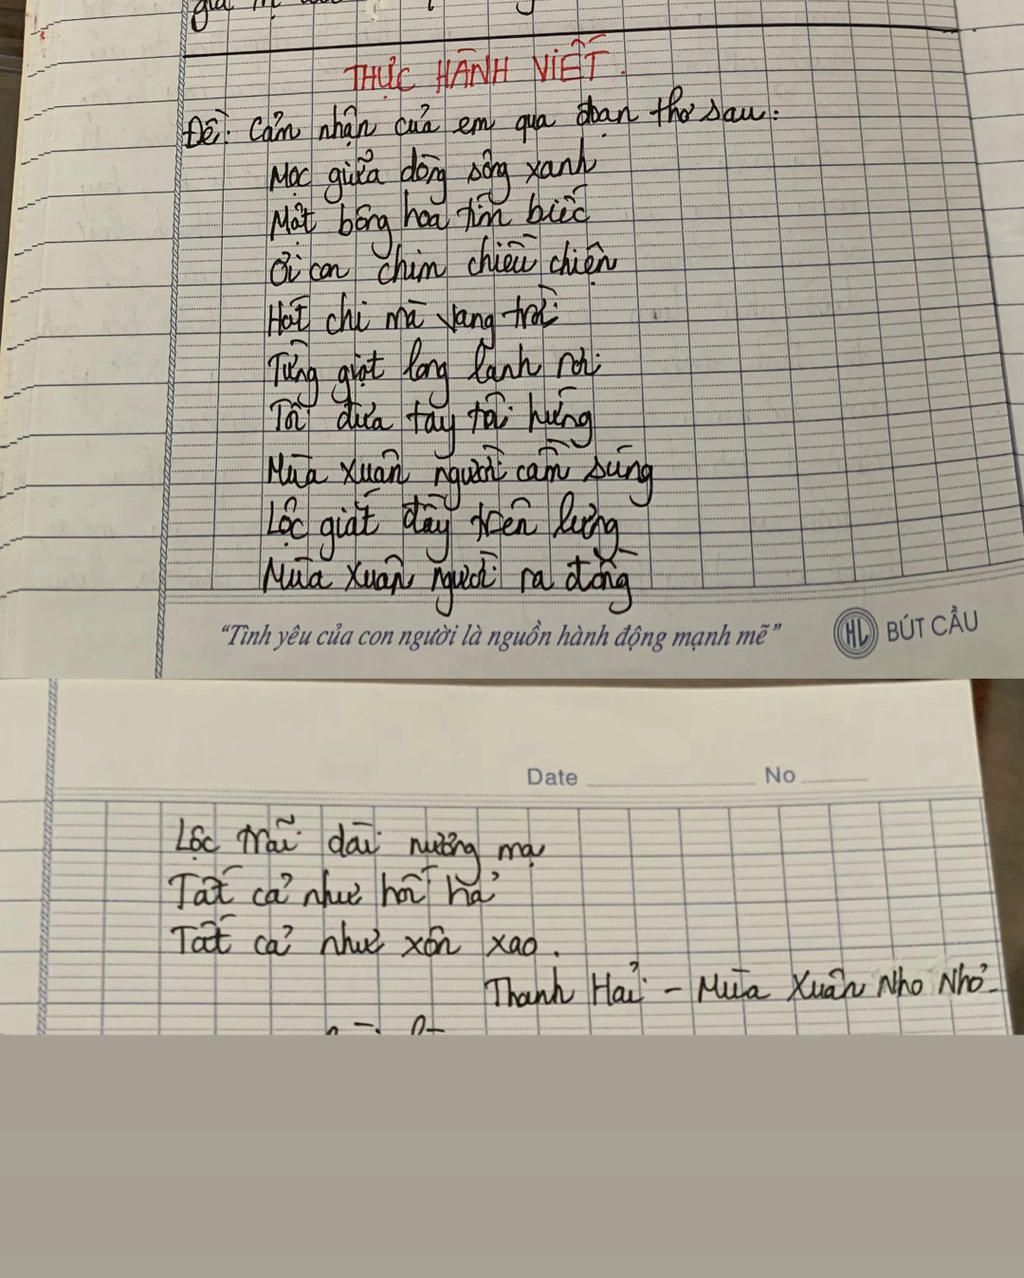 THỰC HÀNH VIẾT.
Đề: Cảm nhận của em qua đoạn thơ sau:
Mọc giữa dòng sông xanh
Một bông hoa tím biếc
Ơi con chim chiều chiện
Hót chi mà vang trời
Từng giọt long lanh rơi
Tôi đưa tay tôi hứng
Mùa xuân người cầm súng
Lộc giắt đầy trên lưng
Mùa xuân người ra đồng
"Tình yêu của con người là nguồn hành động mạnh mẽ"
HL BÚT CẦU
Date No
Lộc trãi dài nương mạ
Tất cả như hối hả
Tất cả như xôn xao.
Thanh Hải - Mùa Xuân Nho Nhỏ